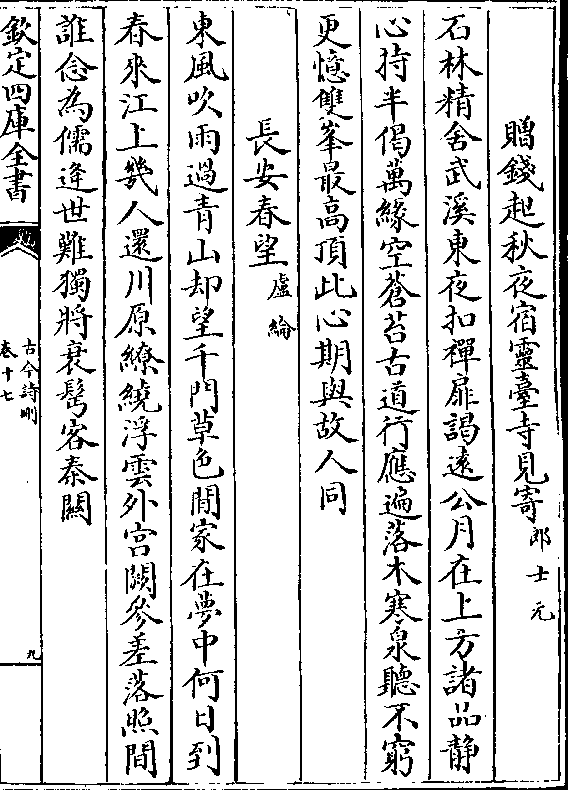 贈錢起秋夜宿靈臺寺見寄 郎士元
石林精舍武溪東夜扣禪扉謁遠公月在上方諸品靜
心持半偈萬緣空蒼苔古道行應遍落木寒泉聽不窮
更憶雙峯最高頂此心期與故人同
長安春望 盧綸
東風吹雨過青山却望千門草色閒家在夢中何日到
春來江上幾人還川原繚繞浮雲外宫闕參差落照間
誰念為儒逢世難獨將衰鬢客秦關
欽定四庫全書
古今詩刪
卷十七
九